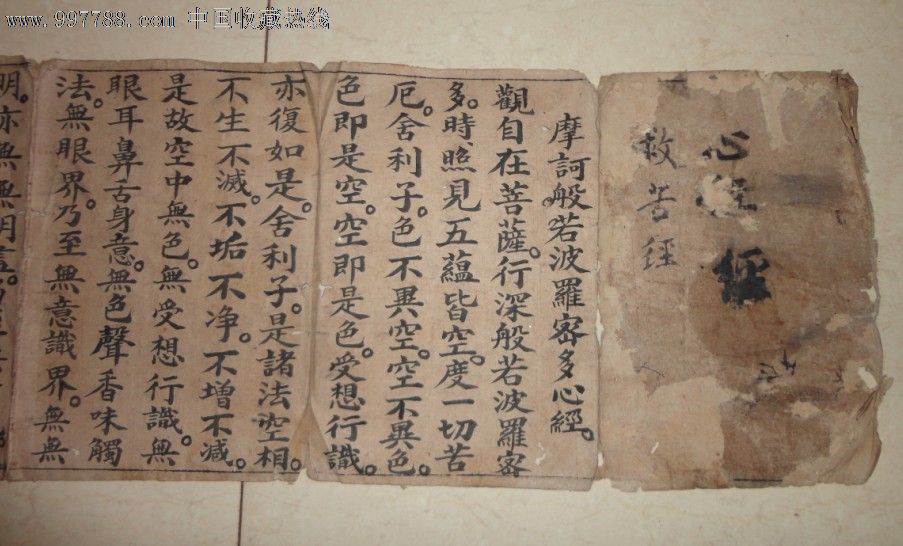 www.997788.com 中国收藏热线
心經
經
救苦經
摩訶般若波羅密多心經。
觀自在菩薩。行深般若波羅密
多。時、照見五蘊皆空。度一切苦
厄。舍利子。色不異空。空不異色。
色即是空。空即是色。受想行識。
亦復如是。舍利子。是諸法空相。
不生不滅。不垢不净。不增不減。
是故空中無色。無受想行識。無
眼耳鼻舌身意。無色聲香味觸
法。無眼界。乃至無意識界。無無
明。亦無無明